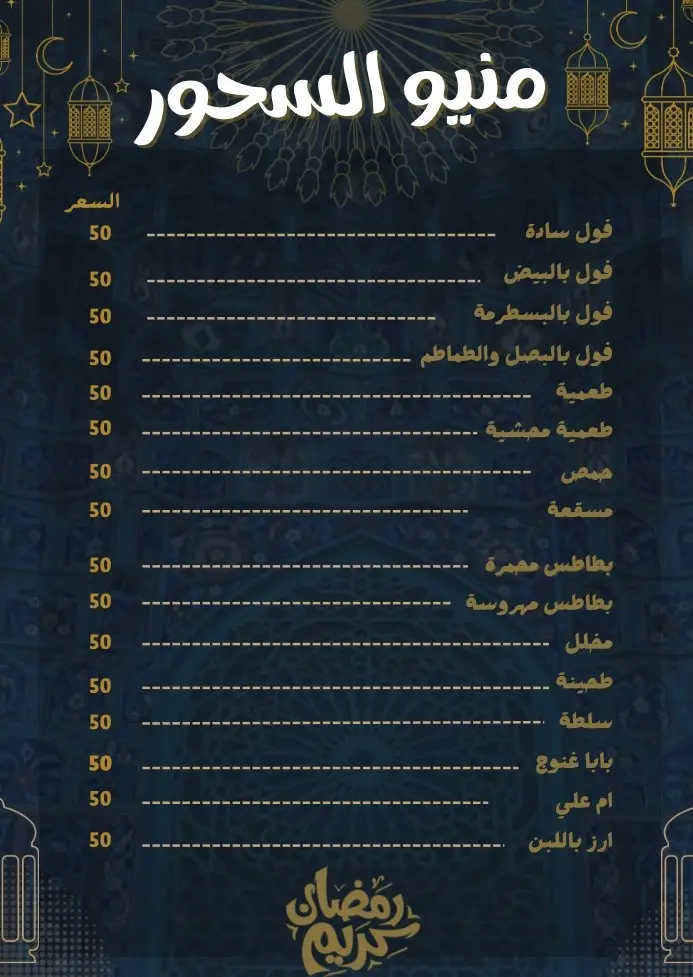 منيو السحور
السعر
فول سادة 50
فول بالبيض 50
فول بالبسطرمة 50
فول بالبصل والطماطم 50
طعمية 50
طعمية محشية 50
حمص 50
مسقعة 50
بطاطس محمرة 50
بطاطس مهروسة 50
مخلل 50
طحينة 50
سلطة 50
بابا غنوج 50
ام علي 50
ارز باللبن 50
رمضان
كريم